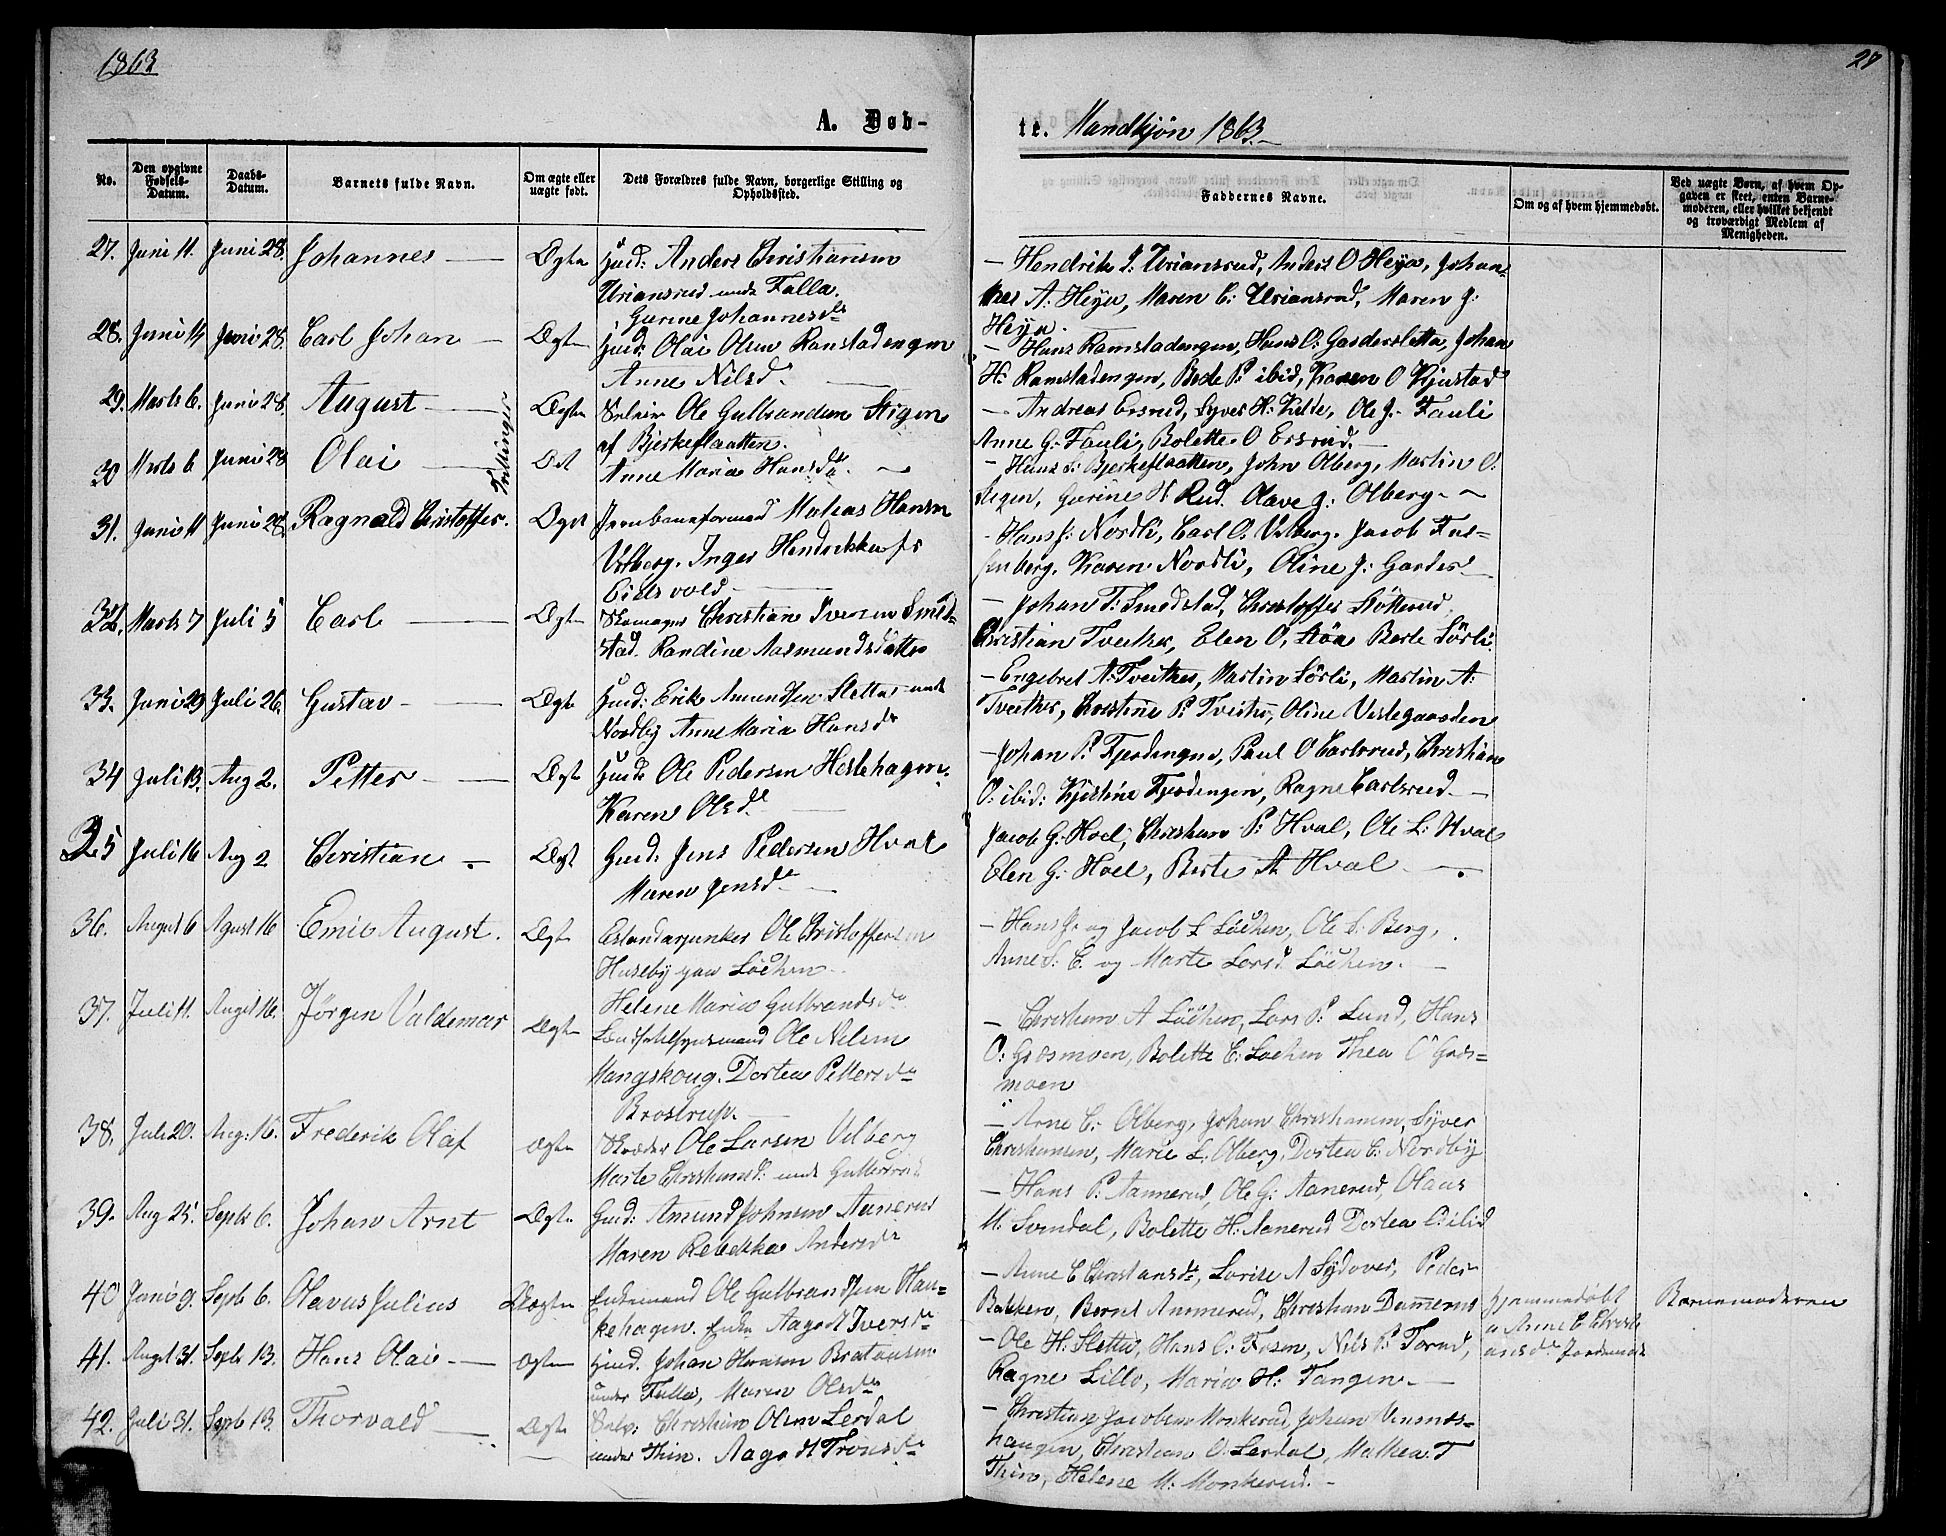 1863
28
A. Døb-
te. Mandkjøn 1863.
No.
Den opgivne Fødsels-Datum.
Daabs-Datum.
Barnets fulde Navn.
Om ægte eller uægte født.
Dets Forældres fulde Navn, borgerlige Stilling og Opholdssted.
Faddernes Navne.
Om og af hvem hjemmedøbt.
Ved uægte Børn, af hvem Opgaven er skeet, enten Barnemoderen, eller hvilket bekjendt og troværdigt Medlem af Menigheden.
27. Juni 11. Juni 28. Johannes Ægte Husd: Anders Christiansen
Uriansrud under Falla.
Gurine Johannesdr
— Hendrik Uriansrud, Anders O Heya, Johan-
nes A. Heya, Maren C: Uriansrud, Maren J:
Heya.
28. Juni 14 Juni 28. Carl Johan Ægte Husd: Olai Olsen Ramstadengen
Anne Nilsd.
— Hans Ramstadengen, Hans O: Gardersletta, Johan
H: Ramstadengen, Bede P: ibid, Karen O Kjustad
29. Marts 6. Juni 28. August Ægte Ole Gulbrandsen Stigen
af Bjerkeflaatten.
Tvillinger
— Andreas Ersrud, Syver H: Kelde, Ole J: Fauli
Anne G: Fauli, Bolette O Ersrud.
30 Marts 6 Juni 28 Olai Anne Maria Hansdr.
— Hans Bjerkeflaatten, John Olberg, Martin O:
Stigen, Gurine H Rud. Olave J: Olberg
31. Juni 11 Juni 28. Ragnald Christoffer. Ægte Jernbaneformand Mathias Hansen
Vilberg. Inger Hendrikka fr
Eidsvold
- Hans J: Nordli, Carl O. Vilberg. Jacob Fal-
kenberg. Karen Nordli, Oline J: Garder
32. Marts 7 Juli 5 Carl Ægte Skomager Christian Iversen Smed-
stad. Randine Aasmundsdatter
— Johan T: Smedstad, Christoffer Støttrud.
Christian Tveiter, Elen O, Støa Berte Sørli
33. Juni 29 Juli 26. Gustav Ægte Husd: Erik Amundsen Sletta unde
Nordby Anne Maria Hansdr
— Engebret A: Tveiter, Martin Sørli, Martin A:
Tveiter, Christine P: Tveiter, Oline Vestegaarden
34 Juli 13. Aug 2. Petter Ægt Husd: Ole Pedersen Hestehagen.
Karen Olsdr
— Johan P: Fjerdengen, Paul O Carlsrud, Christian
O: ibid: Kjerstine Fjerdengen, Ragne Carlsrud.
35 Juli 16 Aug 2 Christian Ægt Gaard: Jens Pedersen Hval
Maren Jensdr
Jacob G: Hoel, Christian P: Hval, Ole L: Hval
Elen G: Hoel, Berte A Hval
36. August 6 Agust 16 Emil August. Ægt Estandarjunker Ole Christoffersen
Huseby paa Løchen
Helene Maria Gulbrandsdr
— Hans J: og Jacob L Løchen, Ole S: Berg,
Anne S: C. og Marte Larsd Løchen.
37. Juli 11. August 16. Jørgen Valdemar Ægte Ole Nilsen
Mangskoug. Dortea Pettersdr
Brostrup.
— Christian A Løchen, Lars P: Lund, Hans
O: Gresmoen, Bolette C: Løchen Thea O Gres-
moen
38. Juli 20. Aug: 16. Frederik Olaf Ægte Skræder Ole Larsen Vilberg
Marte Christiansd: unde
— Arne C: Olberg, Johan Christiansen, Syver
Christiansen, Marie L: Olberg, Dortea C: Nordby
39. Aug 25. Septb 6. Johan Arnt Ægte Gaard: Amund Johnsen Aanerud
Maren Rebekka Andersdr
— Hans P: Aannerud, Ole G: Aanerud, Olaus
M. Svendal, Bolette H: Aanerud Dortea C: ibid
40 Juni 9. Septb 6. Olavus Julius Uægte Enkemand Ole Gulbrandsen Han-
kehagen. Enke Aagodt Iversdr
— Anne C Christansdr, Lovise A Sydover, Peder
Bakken, Bernt Aannerud, Christian
hjemmedøbt
a Anne C Christi
ansdr Jordemor
Barnemoderen
41. Augst 31. Septb 13. Hans Olai Ægte Husd. Johan Hansen Brataasen
under Falla, Maren Olsdr
— Ole H: Sletta, Hans C: Fosen, Nils P: Torud,
Ragne Lillo, Maria H: Tangen.
42. Juli 31. Septb 13. Thorvald Ægte Selv: Christian Olsen Lerdal
under Thin. Aagodt Tronsdr
— Christian Jacobsen Monkerud, Johan
haugen, Christian O: Lerdal, Mathea T
Thin, Helene M: Monkerud.